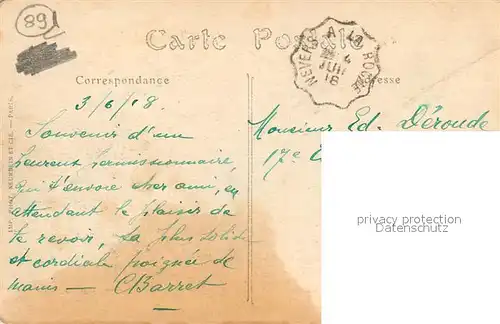 89
Carte Postale
NEVERS A LA ROCHE
4
JUIN
18
Correspondance
Adresse
3/6/18.
Souvenir d'un
heureux permissionnaire,
qui t'envoie cher ami, en
attendant le plaisir de
te revoir, la plus solide
et cordiale poignée de
mains — CBarret
Monsieur Ed. Déroude
17e
privacy protection
Datenschutz